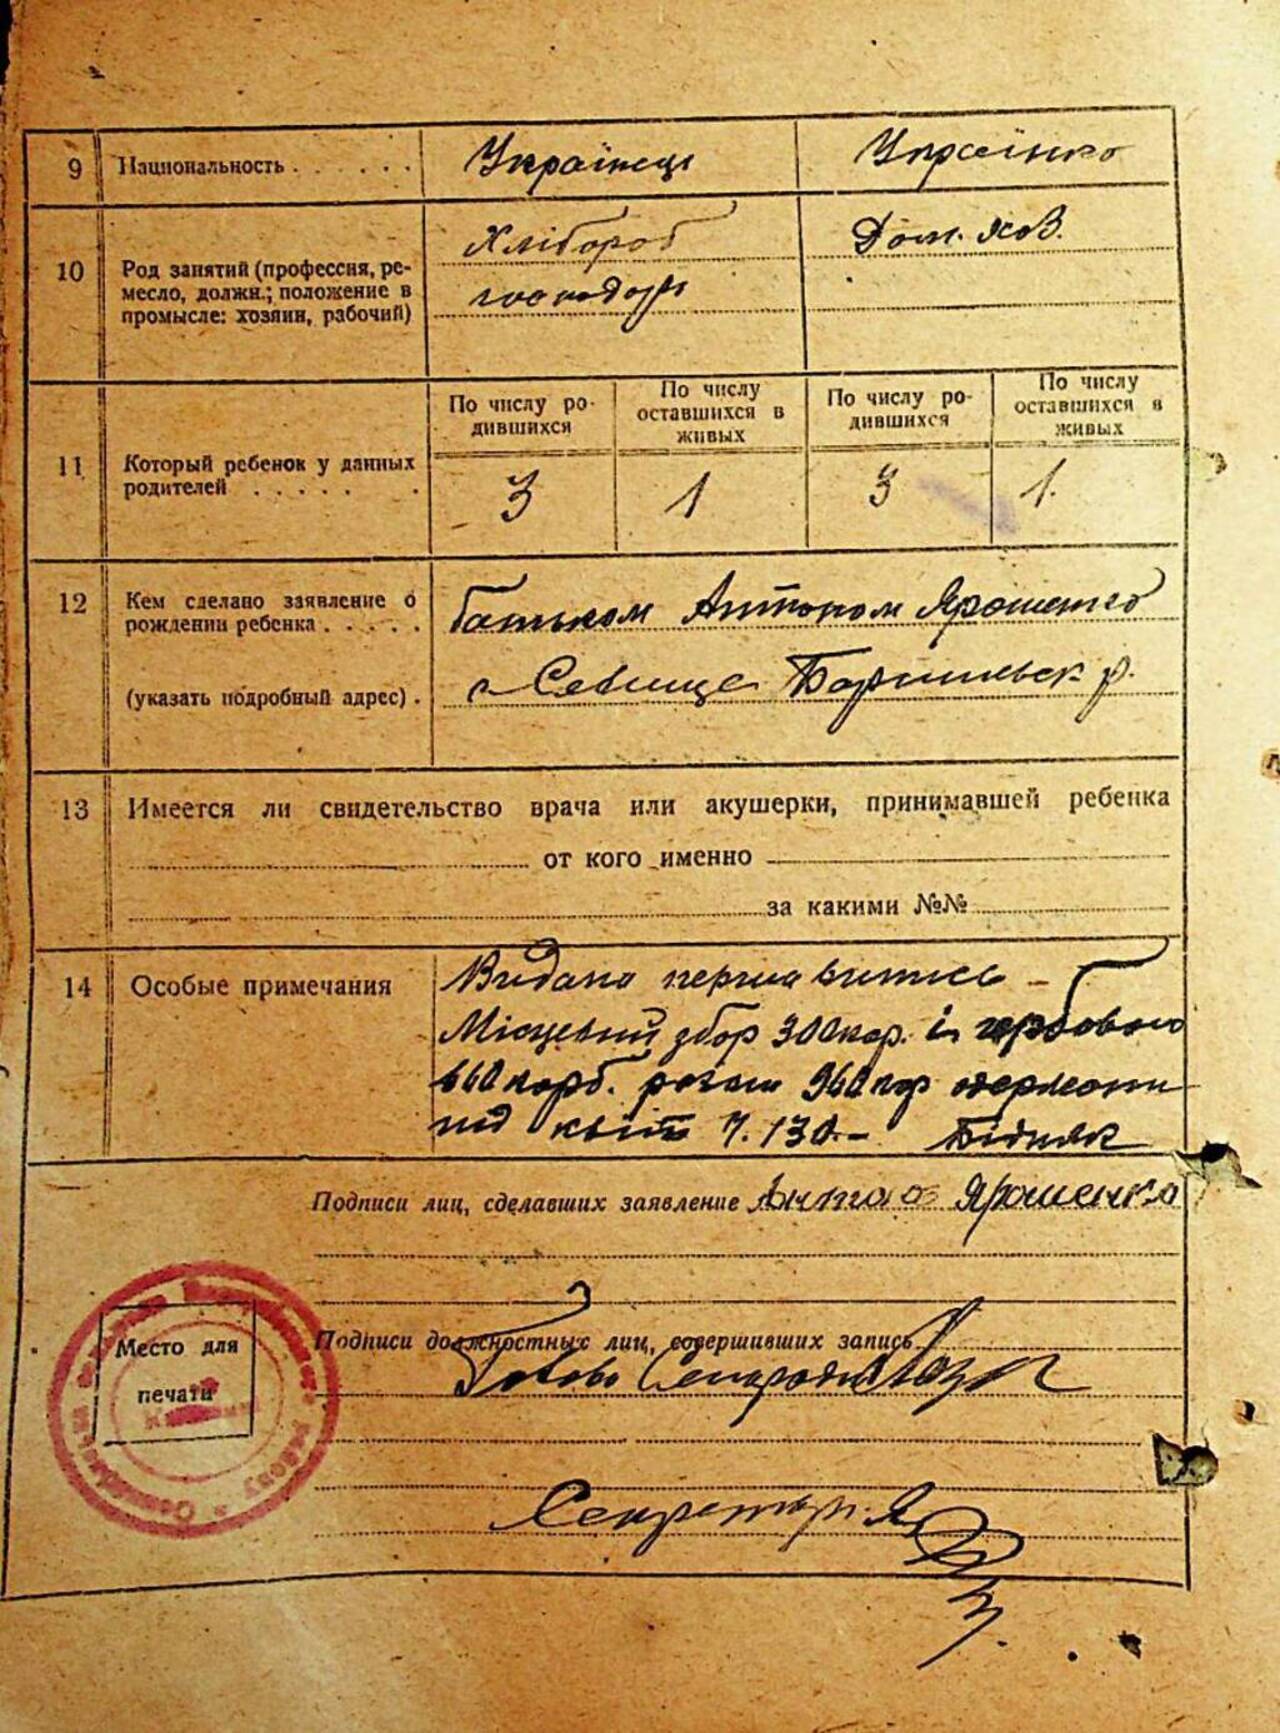 9 Национальность . . . . . . Українець Українка
10 Род занятий (профессия, ре-
месло, должн.; положение в
промысле: хозяин, рабочий)
Хлібороб
господарь
Дом. хоз.
11 Который ребенок у данных
родителей . . . . . .
По числу ро-
дившихся
По числу
оставшихся в
живых
По числу ро-
дившихся
По числу
оставшихся в
живых
3 1 3 1.
12 Кем сделано заявление о
рождении ребенка . . . . .
(указать подробный адрес) .
батьком Антоном Ярошенко
с Селище Баришевск р.
13 Имеется ли свидетельство врача или акушерки, принимавшей ребенка
от кого именно
за какими №№
14 Особые примечания
Видана перша витись –
Місцевий збор 300кар. і гербового
660карб. разом 960кар одержани
під квіт 7.130.– Бідняк
Подписи лиц, сделавших заявление Антон Ярошенко
Подписи должностных лиц, совершивших запись
Голова Сельради
Секретарь
Место для
печати